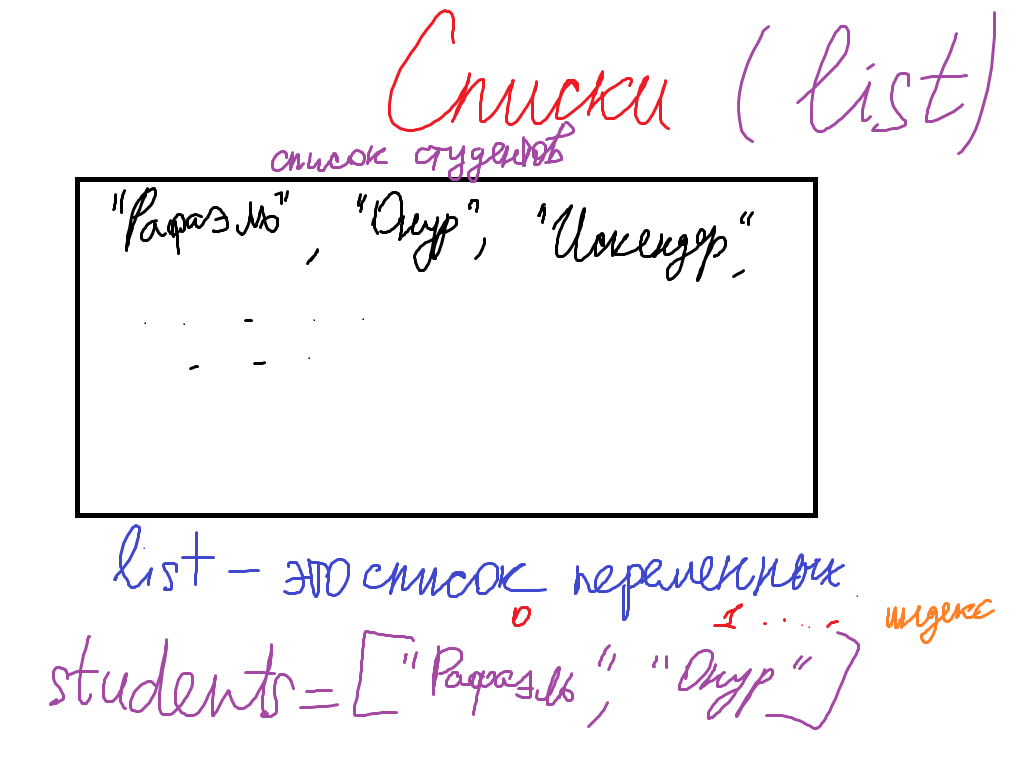 Списки (list)
список студентов
"Рафаэль", "Онур", "Искендер",
list - это список переменных
0 1 ..... индекс
students = ["Рафаэль", "Онур"]